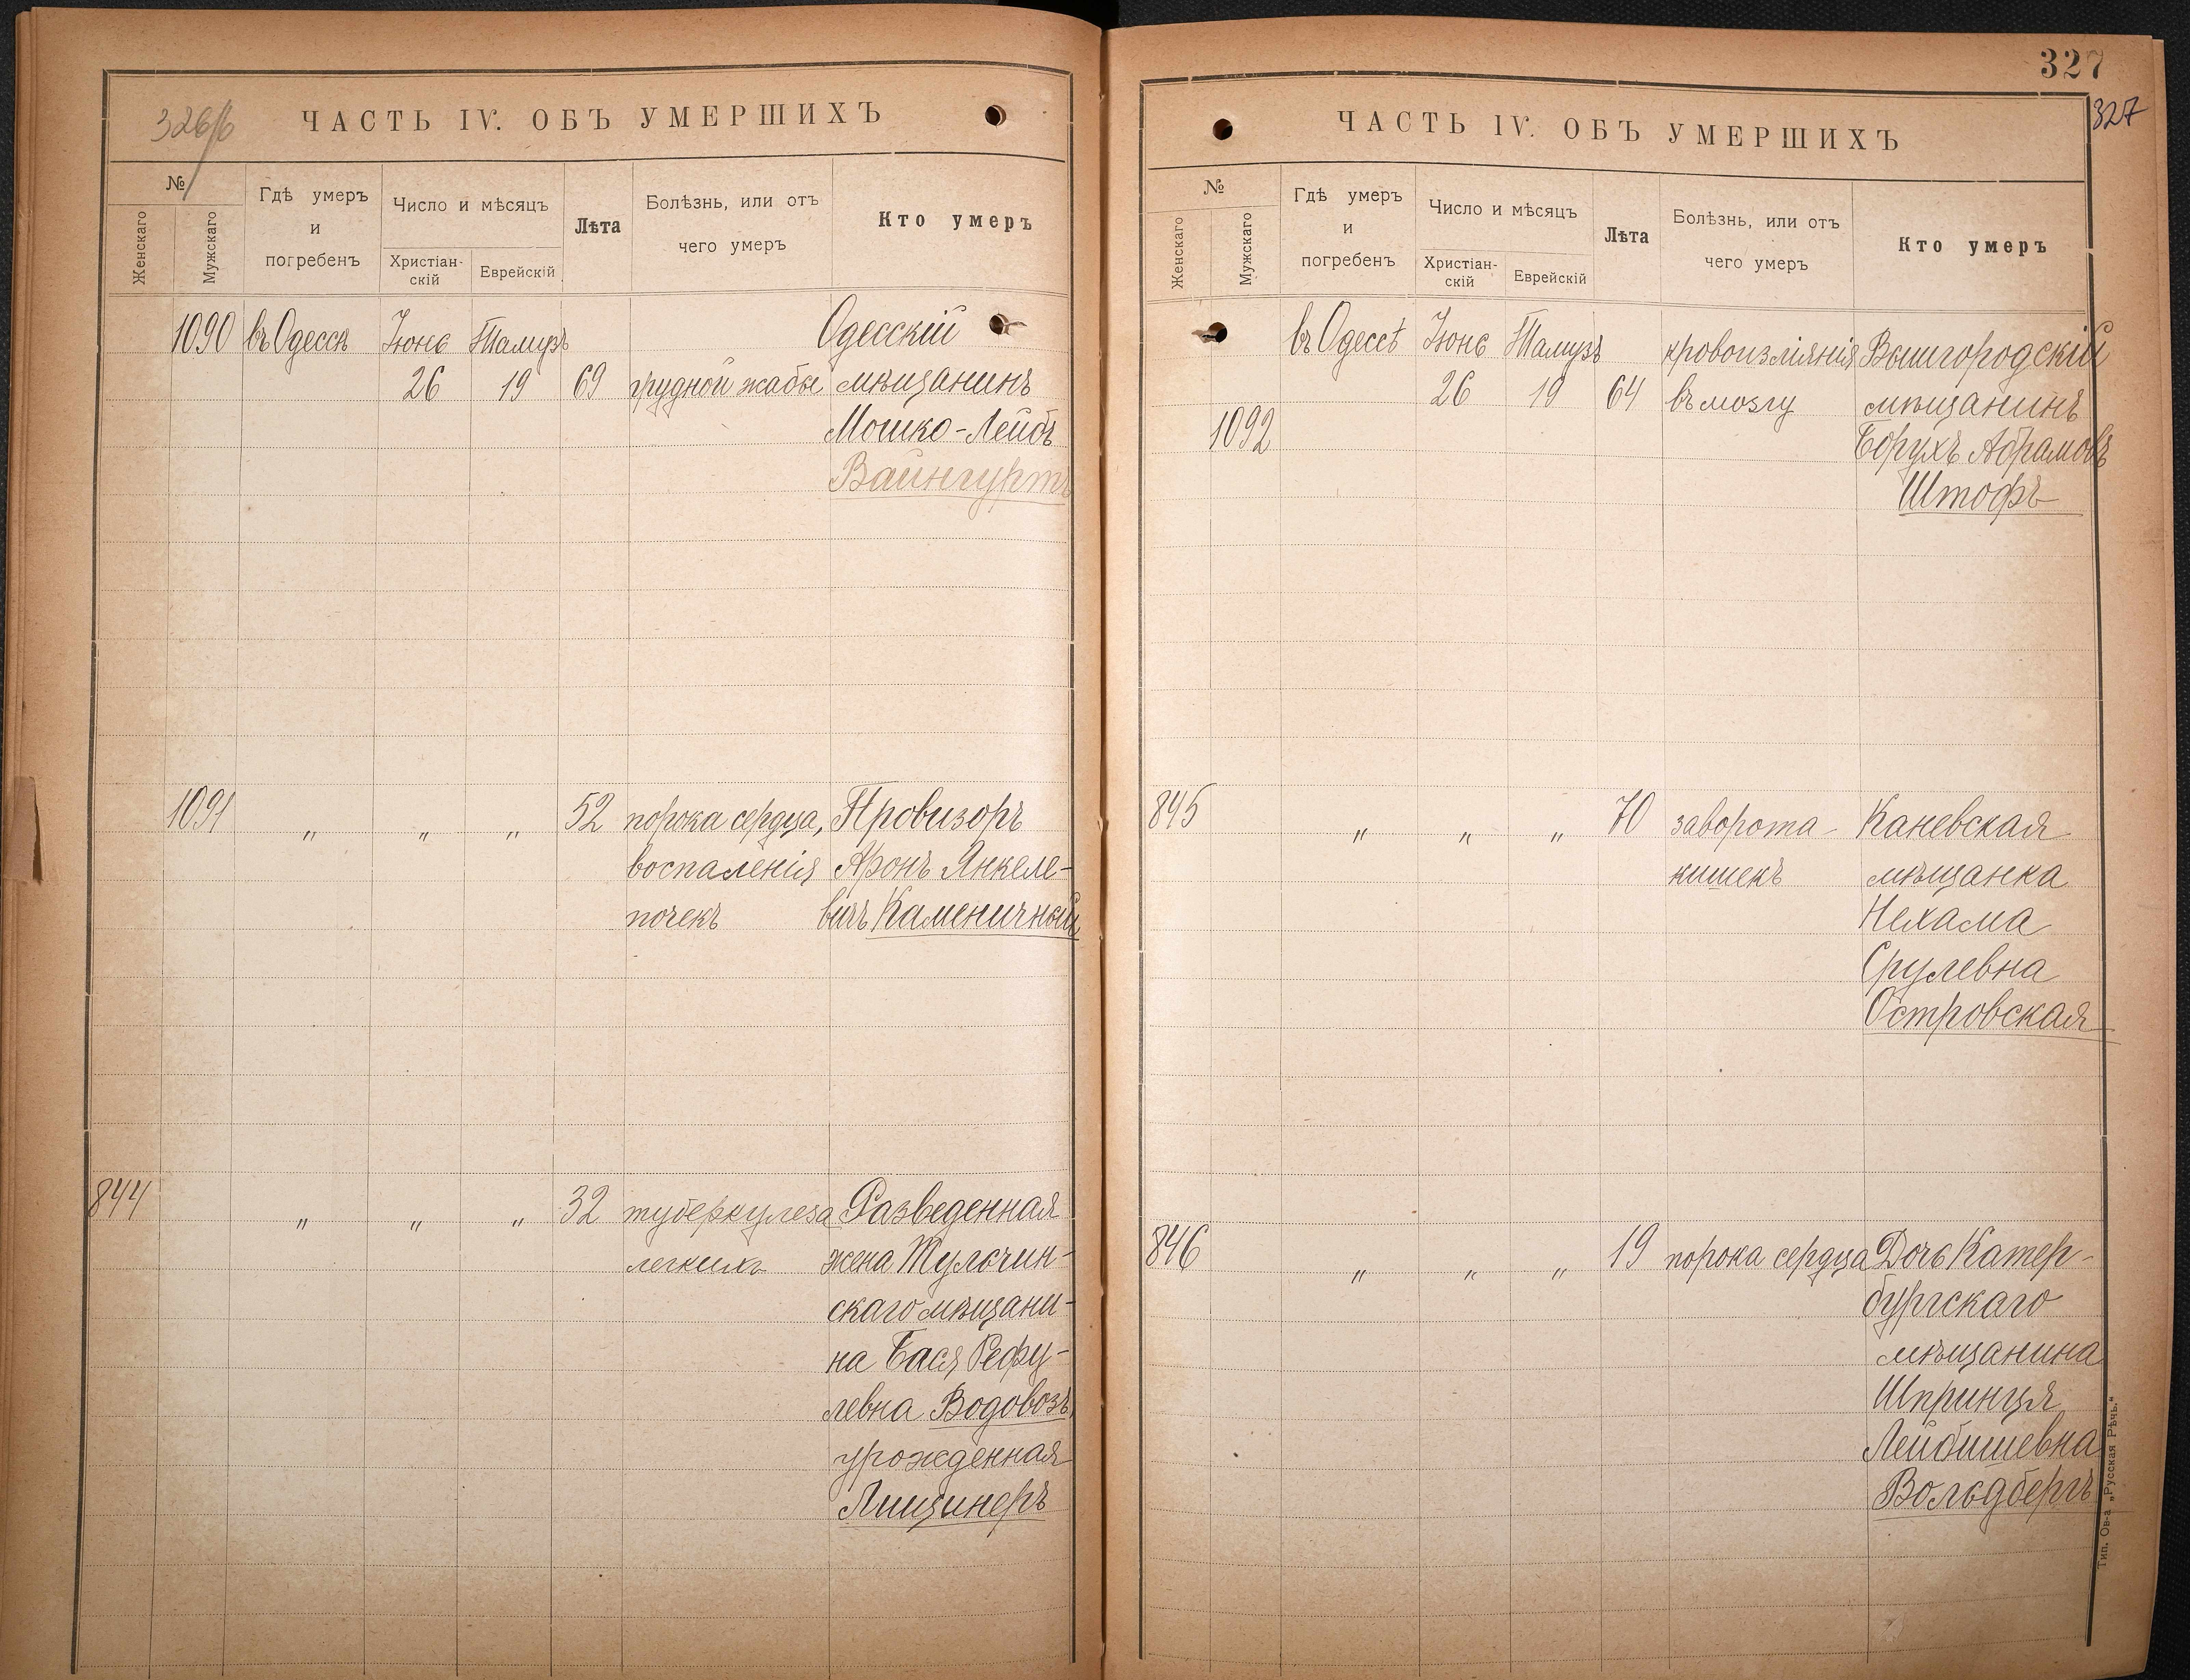 326/б
ЧАСТЬ IV. ОБЪ УМЕРШИХЪ
№
Женскаго
Мужскаго
Гдѣ умеръ
и
погребенъ
Число и мѣсяцъ
Христіан-
скій
Еврейскій
Лѣта
Болѣзнь, или отъ
чего умеръ
Кто умеръ
1090 въ Одессѣ Іюнь Тамузъ Одесскій
26 19 69 грудной жабы мѣщанинъ
Мошко-Лейбъ
Вайнгуртъ
1091 " " " 52 порока сердца, Провизоръ
воспаленія Аронъ Янкеле-
почекъ вичъ Каменичный
844 " " " 32 туберкулеза Разведенная
легкихъ жена Тульчин-
скаго мѣщани-
на Бася Рефу-
левна Водовозъ,
урожденная
Лищинеръ
327
327
ЧАСТЬ IV. ОБЪ УМЕРШИХЪ
№
Женскаго
Мужскаго
Гдѣ умеръ
и
погребенъ
Число и мѣсяцъ
Христіан-
скій
Еврейскій
Лѣта
Болѣзнь, или отъ
чего умеръ
Кто умеръ
въ Одессѣ Іюнь Тамузъ кровоизліянія Вышгородскій
26 19 64 въ мозгу мѣщанинъ
1092 Борухъ Абрамовъ
Штофъ
845 " " " 70 заворота Каневская
кишекъ мѣщанка
Нехама
Срулевна
Островская
846 " " " 19 порока сердца Дочь Катер-
бургскаго
мѣщанина
Шпринця
Лейбишевна
Вольдбергъ
Тип. Ов-а „Русская Рѣчь."